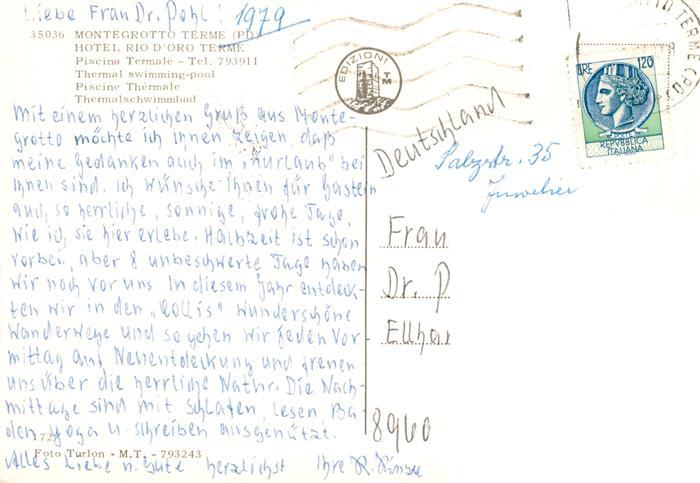 Liebe Frau Dr. Pohl! 1979
35036 MONTEGROTTO TERME (PD)
HOTEL RIO D'ORO TERME
Piscina Termale - Tel. 793911
Thermal swimming-pool
Piscine Thérmale
Thermalschwimmbad
Mit einem herzlichen Gruß aus Monte-
grotto möchte ich Ihnen zeigen, daß
meine Gedanken auch im „Kurlaub" bei
Ihnen sind. Ich wünsche Ihnen für Gastein
auch so herrliche, sonnige, frohe Tage,
wie ich sie hier erlebe. Halbzeit ist schon
vorbei, aber 8 unbeschwerte Tage haben
wir noch vor uns. In diesem Jahr entdeck-
ten wir in den „Collis" wunderschöne
Wanderwege und so gehen wir jeden Vor-
mittag auf Neuentdeckung und freuen
uns über die herrliche Natur. Die Nach-
mittage sind mit Schlafen, lesen, Ba-
den, Yoga u. schreiben ausgenützt.
172
Foto Turlon - M.T. - 793243
Alles Liebe u. Gute herzlichst Ihre
EDIZIONI
TM
LIRE 120
REPVBBLICA
ITALIANA
TERME (PD)
Deutschland
Salzstr. 35
Juwelier
Frau
Dr. P
Ellha
8960